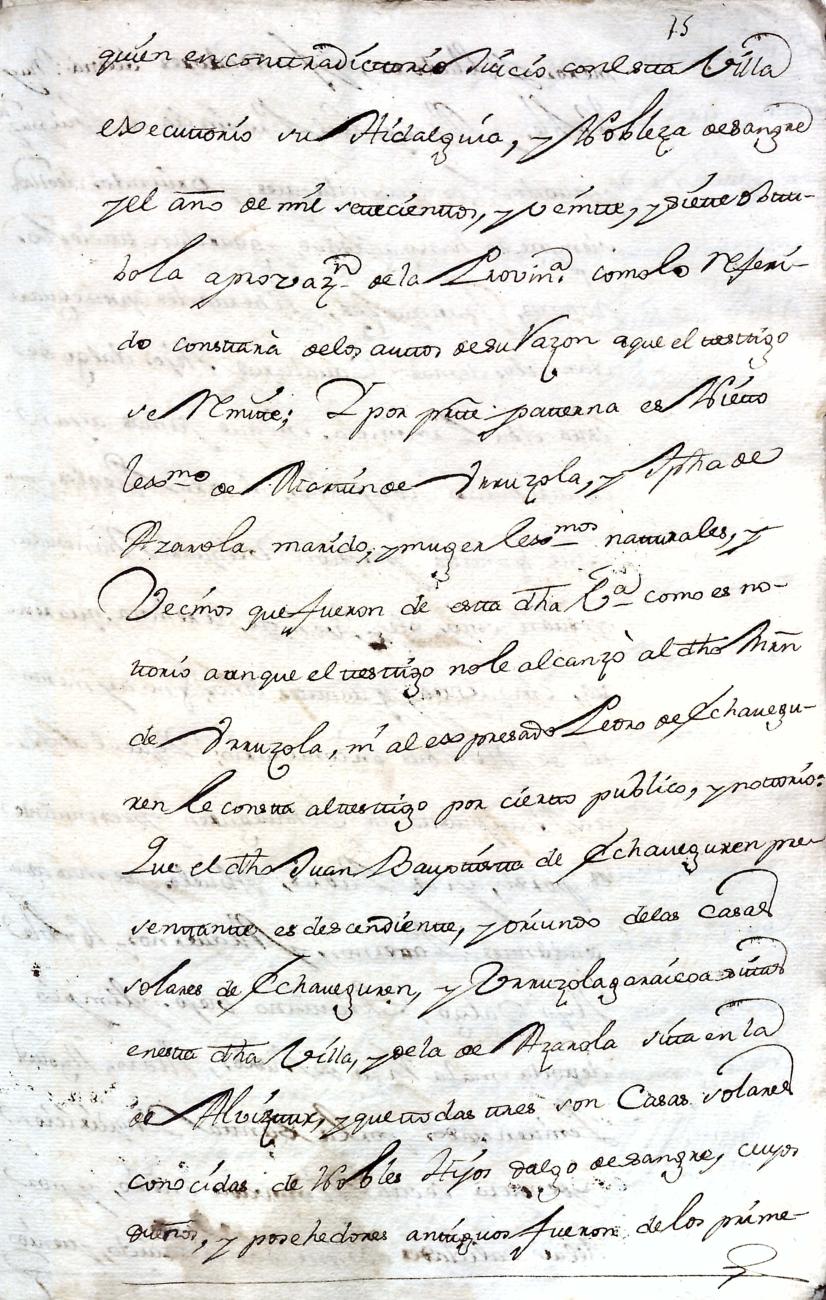 15
quien en conttradicttorio Juicio con estta Villa
executtorio su Hidalguia, y Nobleza de sangre
y el año de mil settecienttos, y veintte, y siette obttu-
bo la aprovazn de la Provina. como lo referi-
do consttarà de los auttos de su razon a que el testtigo
se remitte; Y por partte patterna es Nietto
lexmo de Martin de Urruzola, y Jpha de
Azarola. marido, y muger lexmos natturales, y
Vecinos que fueron de estta dha Va como es no-
ttorio aunque el testtigo no le alcanzò al dho Mrn
de Urruzola, ni al expresado Pedro de Echavegu-
ren le constta al testtigo por cierto publico, y nottorio:
Que el dho Juan Bapttistta de Echaveguren pre-
senttantte es descendientte, y oriundo de las Casas
solares de Echaveguren, y Urruzolagaraicoa sittas
en estta dha Villa, y de la de Azarola sitta en la
de Alvizttur, y que ttodas ttres son Casas solares
conocidas de Nobles Hijos dalgo de sangre, cuyos
dueños, y posehedores antiguos fueron de los prime-